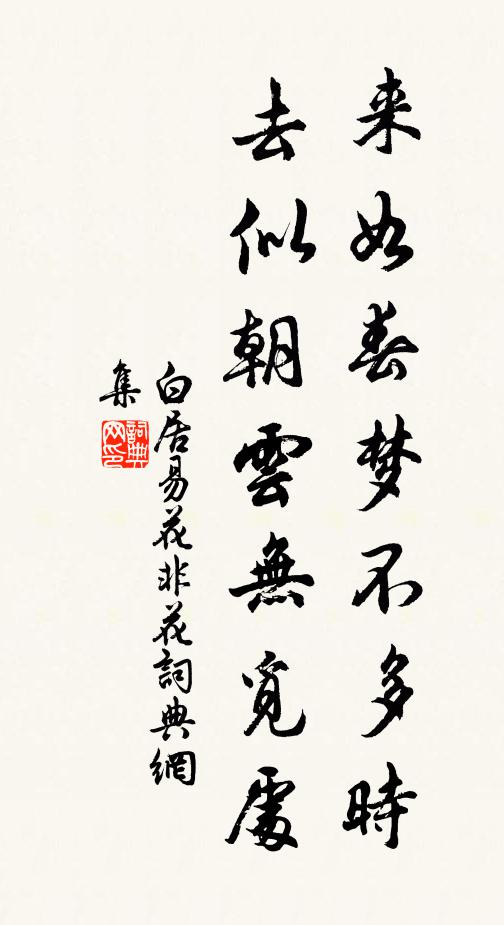 来如春梦不多時
去似朝雲無覓處
白居易花非花詞典網
集
詞典
网印